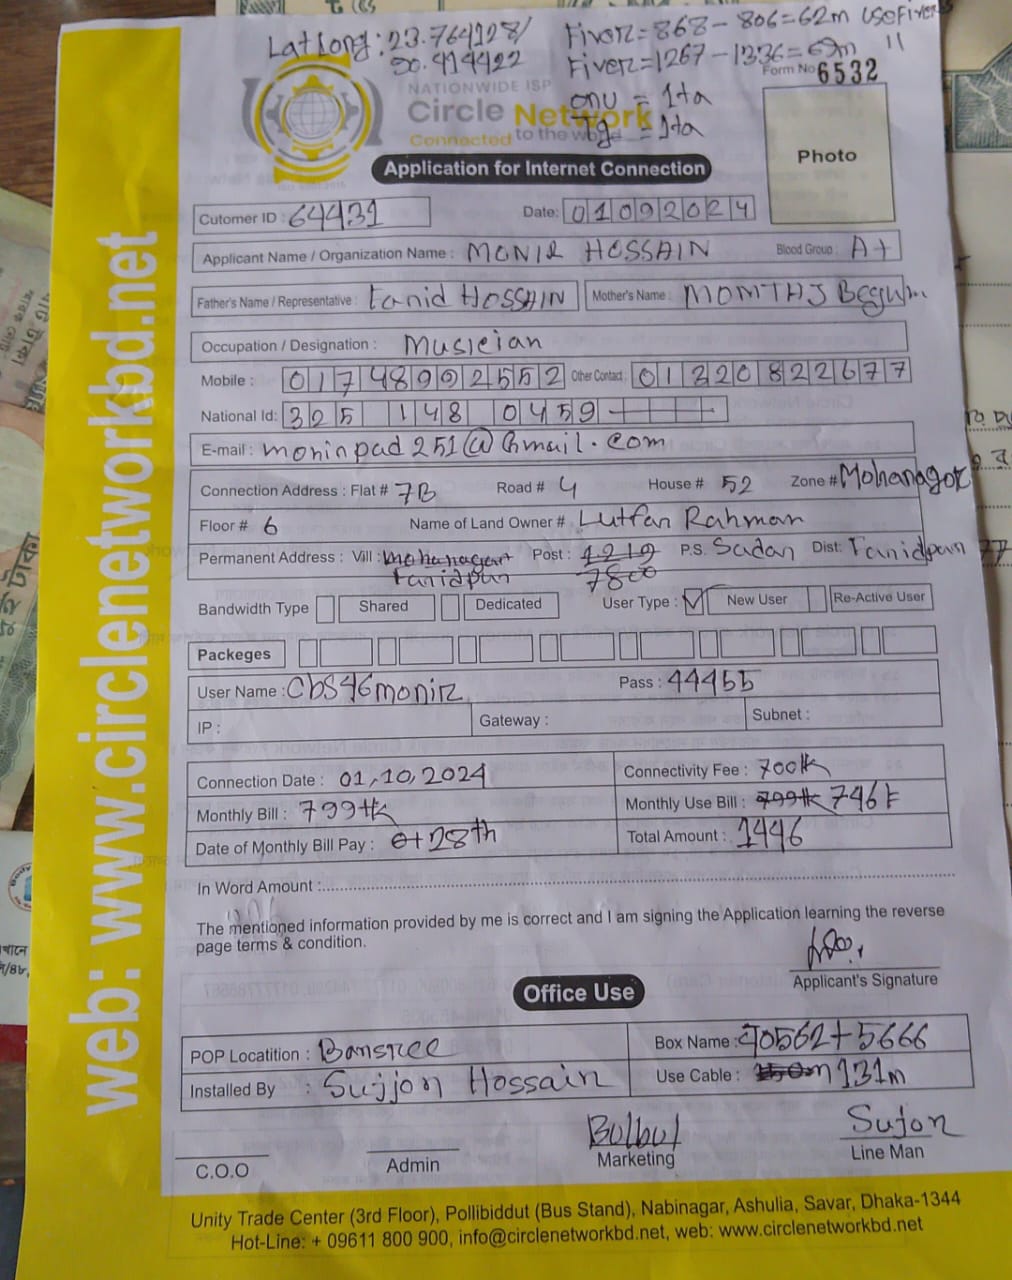 Latlong: 23.764128/
90.414422
Fiver=868-806=62m Use Fiver
Fiver=1267-1336=69m "
Form No 6532
NATIONWIDE ISP
Circle Network
Connected to the world
onu = 1ta
tg = 1ta
Photo
Application for Internet Connection
Cutomer ID : 64431
Date: 01092024
Applicant Name / Organization Name : MONIR HOSSAIN Blood Group : A+
Father's Name / Representative : Farid HOSSAIN Mother's Name : MOMTAJ Begum
Occupation / Designation : Musician
Mobile : 01748992552 Other Contact : 01320822677
National Id: 325 148 0459
E-mail : monirpad251@gmail.com
Connection Address : Flat # 7B Road # 4 House # 52 Zone # Mohanagor
Floor # 6 Name of Land Owner # Lutfar Rahman
Permanent Address : Vill : Mohanagar Post : 1219 P.S. Sadar Dist: Faridpur
Faridpur 7800
Bandwidth Type Shared Dedicated User Type : ✓ New User Re-Active User
Packeges
User Name : Cbs46monir Pass : 44455
IP : Gateway : Subnet :
Connection Date : 01,10,2024 Connectivity Fee : 700tk
Monthly Bill : 799tk Monthly Use Bill : 799tk 746t
Date of Monthly Bill Pay : 28th Total Amount : 1446
In Word Amount :
The mentioned information provided by me is correct and I am signing the Application learning the reverse
page terms & condition.
Applicant's Signature
Office Use
POP Locatition : Bansree Box Name : 40562+5666
Installed By : Sujjon Hossain Use Cable : 131m
Bulbul Sujon
C.O.O Admin Marketing Line Man
Unity Trade Center (3rd Floor), Pollibiddut (Bus Stand), Nabinagar, Ashulia, Savar, Dhaka-1344
Hot-Line: + 09611 800 900, info@circlenetworkbd.net, web: www.circlenetworkbd.net
web: www.circlenetworkbd.net